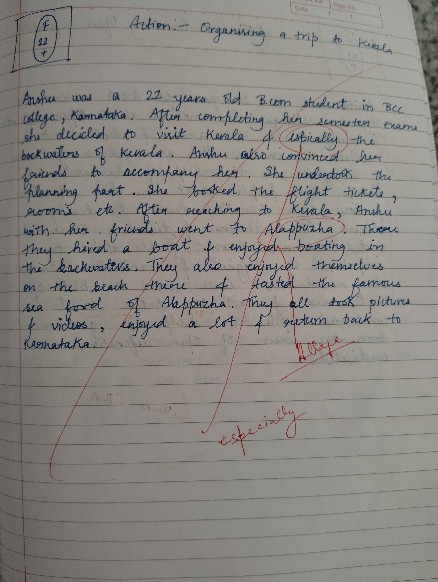 F
22
+
Action:- Organising a trip to Kerala
Anshu was a 22 years old B.com student in BCC
college, Karnataka. After completing her semester exams
she decided to visit Kerala & espically the
backwaters of Kerala. Anshu also convinced her
friends to accompany her. She undertook the
planning part. She booked the flight tickets,
rooms etc. After reaching to Kerala, Anshu
with her friends went to Alappuzha. There
they hired a boat & enjoyed boating in
the backwaters. They also enjoyed themselves
on the beach there & tasted the famous
sea food of Alappuzha. They all took pictures
& videos, enjoyed a lot & return back to
Karnataka.
especially